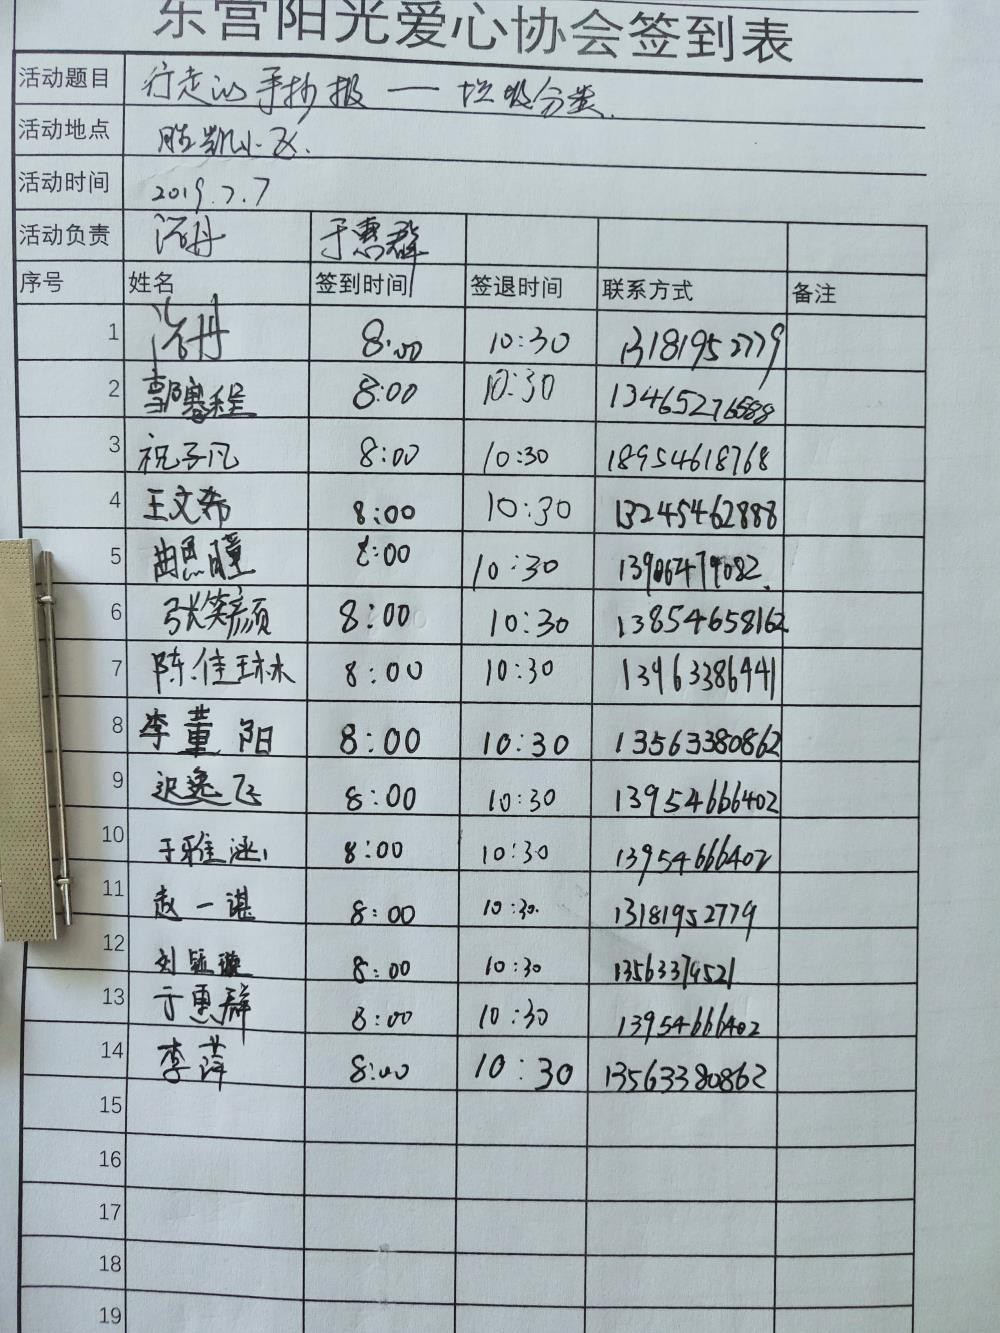 东营阳光爱心协会签到表
活动题目 行走的手抄报 — 垃圾分类
活动地点 胜凯小区.
活动时间 2019.7.7
活动负责 丹 于惠群
序号 姓名 签到时间 签退时间 联系方式 备注
1 丹 8:00 10:30 13181952779
2 郭 程 8:00 10:30 13465276588
3 祝子凡 8:00 10:30 18954618768
4 王文希 8:00 10:30 13245462888
5 曲思瞳 8:00 10:30 13906479082
6 张笑颜 8:00 10:30 13854658162
7 陈佳琳 8:00 10:30 13963386441
8 李董阳 8:00 10:30 13563380862
9 迟逸飞 8:00 10:30 13954666402
10 于雅涵 8:00 10:30 13954666402
11 赵一谌 8:00 10:30. 13181952779
12 刘 璇 8:00 10:30 13563379521
13 于惠群 8:00 10:30 13954666402
14 李萍 8:00 10:30 13563380862
15
16
17
18
19